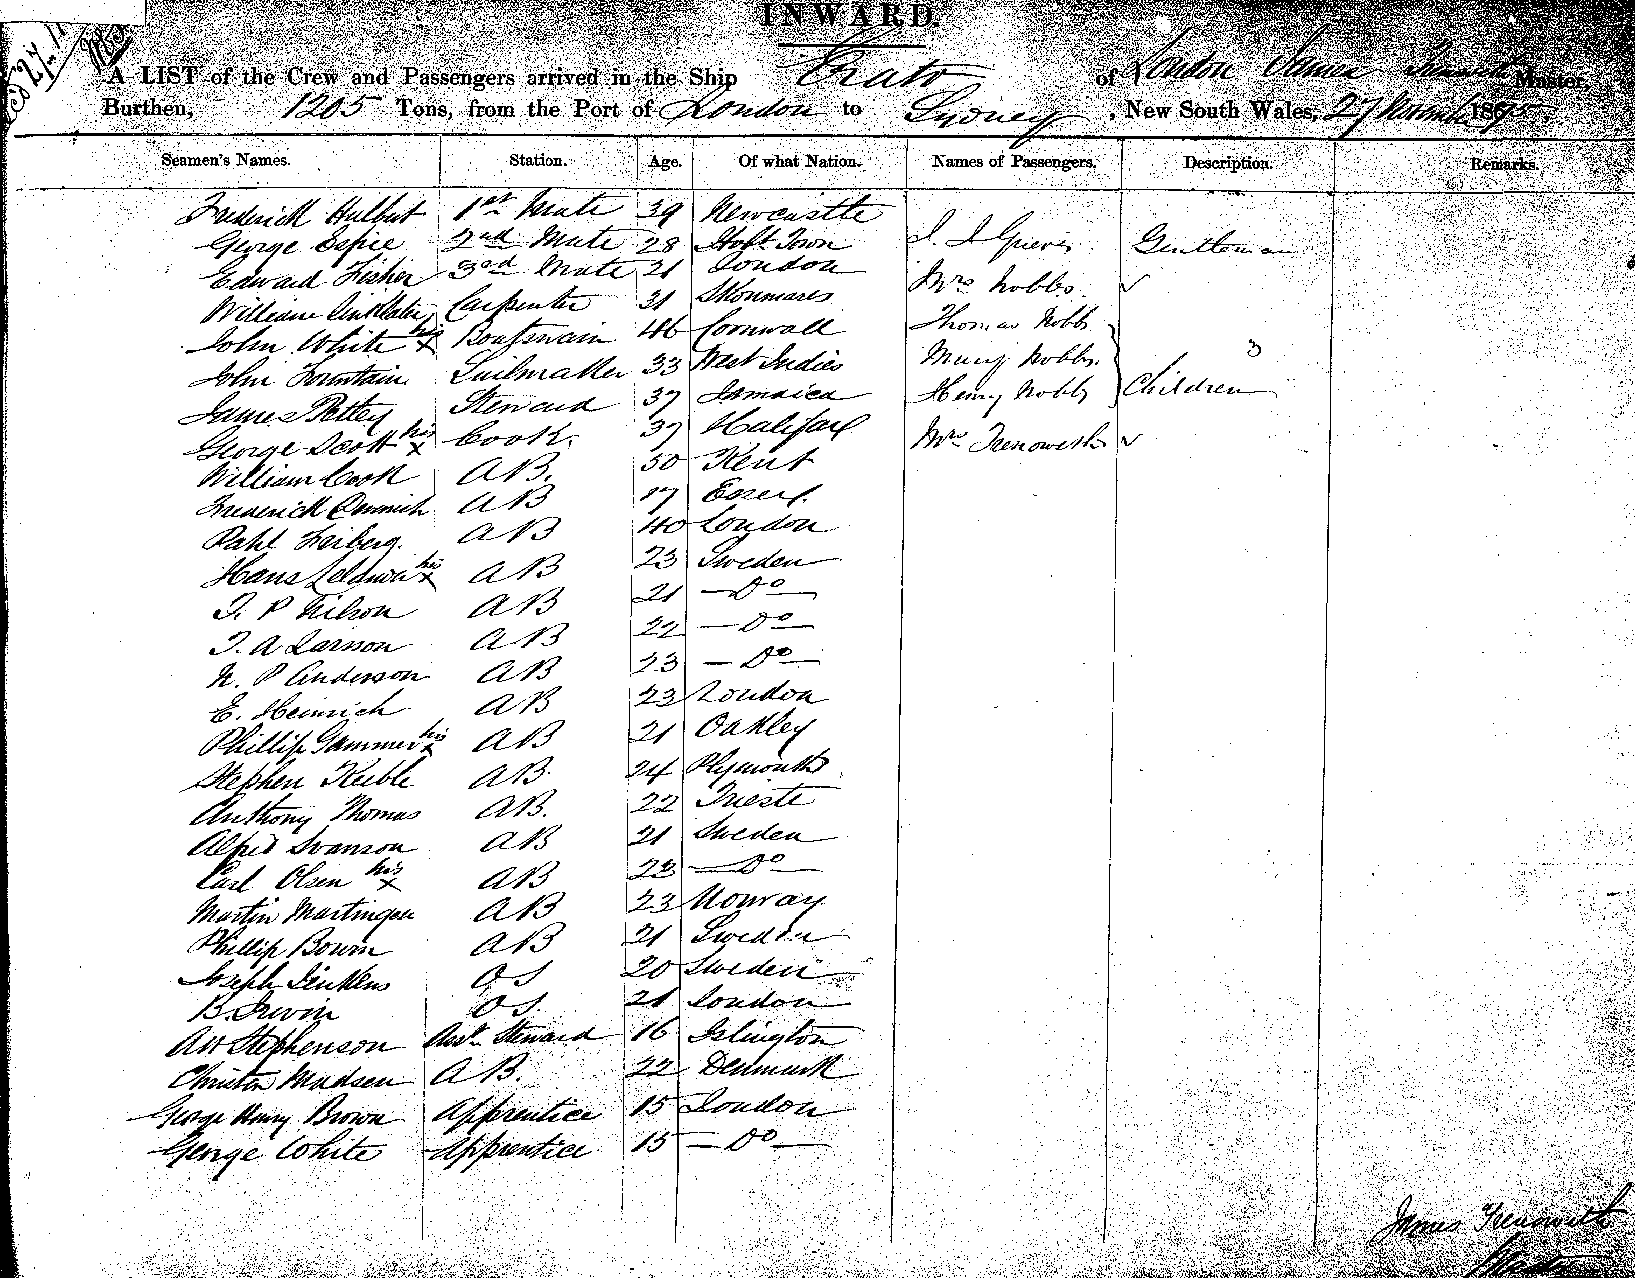 INWARD.
A LIST of the Crew and Passengers arrived in the Ship Erato of London James Trenowith Master,
Burthen, 1205 Tons, from the Port of London to Sydney, New South Wales, 27 November 1875
Seamen's Names. Station. Age. Of what Nation. Names of Passengers. Description. Remarks.
Frederick Hulbut 1st Mate 39 Newcastle
George Espie 2nd Mate 28 Hobt Town J. J Grieves Gentleman
Edward Fisher 3rd Mate 21 London Mrs Nobbs ✓
William Carpenter 31
John White his x Boatswain 46 Cornwall Thomas Nobbs
John Fountain Sailmaker 33 West Indies Mary Nobbs 3
James Pettey Steward 37 Jamaica Henry Nobbs Children
George Scott his x Cook. 37 Halifax Mrs Trenowith ✓
William Cook AB. 50 Kent
Frederick AB 17 Essex
Pahl Freiberg. AB 40 London
Hans his x AB 23 Sweden
J. P Nilson AB 21 — Do —
J. A Larson AB 22 — Do —
N. P Anderson AB 23 — Do —
E. Heinrich AB 23 London
Phillip Gammer his x AB 21 Oakley
Stephen Keeble AB. 24 Plymouth
Anthony Thomas AB. 22 Trieste
Alfred Swanson AB 21 Sweden
Carl Olsen his x AB 23 — Do —
Martin Martingen AB 23 Norway
Phillip Bowin AB 21 Sweden
Joseph Jenkens OS 20 Sweden
B. Irwin OS. 21 London
AW Stephenson Asst Steward 16 Islington
Christen Madsen AB. 22 Denmark
George Henry Brown Apprentice 15 London
George White Apprentice 15 — Do —
James Trenowith
Master